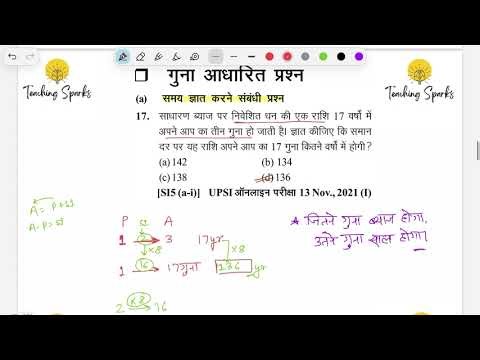 Teaching Sparks
Teaching Sparks
❒ गुना आधारित प्रश्न
(a) समय ज्ञात करने संबंधी प्रश्न
17. साधारण ब्याज पर निवेशित धन की एक राशि 17 वर्षों में
अपने आप का तीन गुना हो जाती है। ज्ञात कीजिए कि समान
दर पर यह राशि अपने आप का 17 गुना कितने वर्षों में होगी?
(a) 142 (b) 134
(c) 138 (d) 136
[SI5 (a-i)] UPSI ऑनलाइन परीक्षा 13 Nov., 2021 (I)
A = P + SI
A - P = SI
P SI A
1 3 17yr
×8 ×8
1 16 17गुना 136 yr
2 ×8 16
★ जितने गुना ब्याज होगा,
उतने गुना साल होगा।